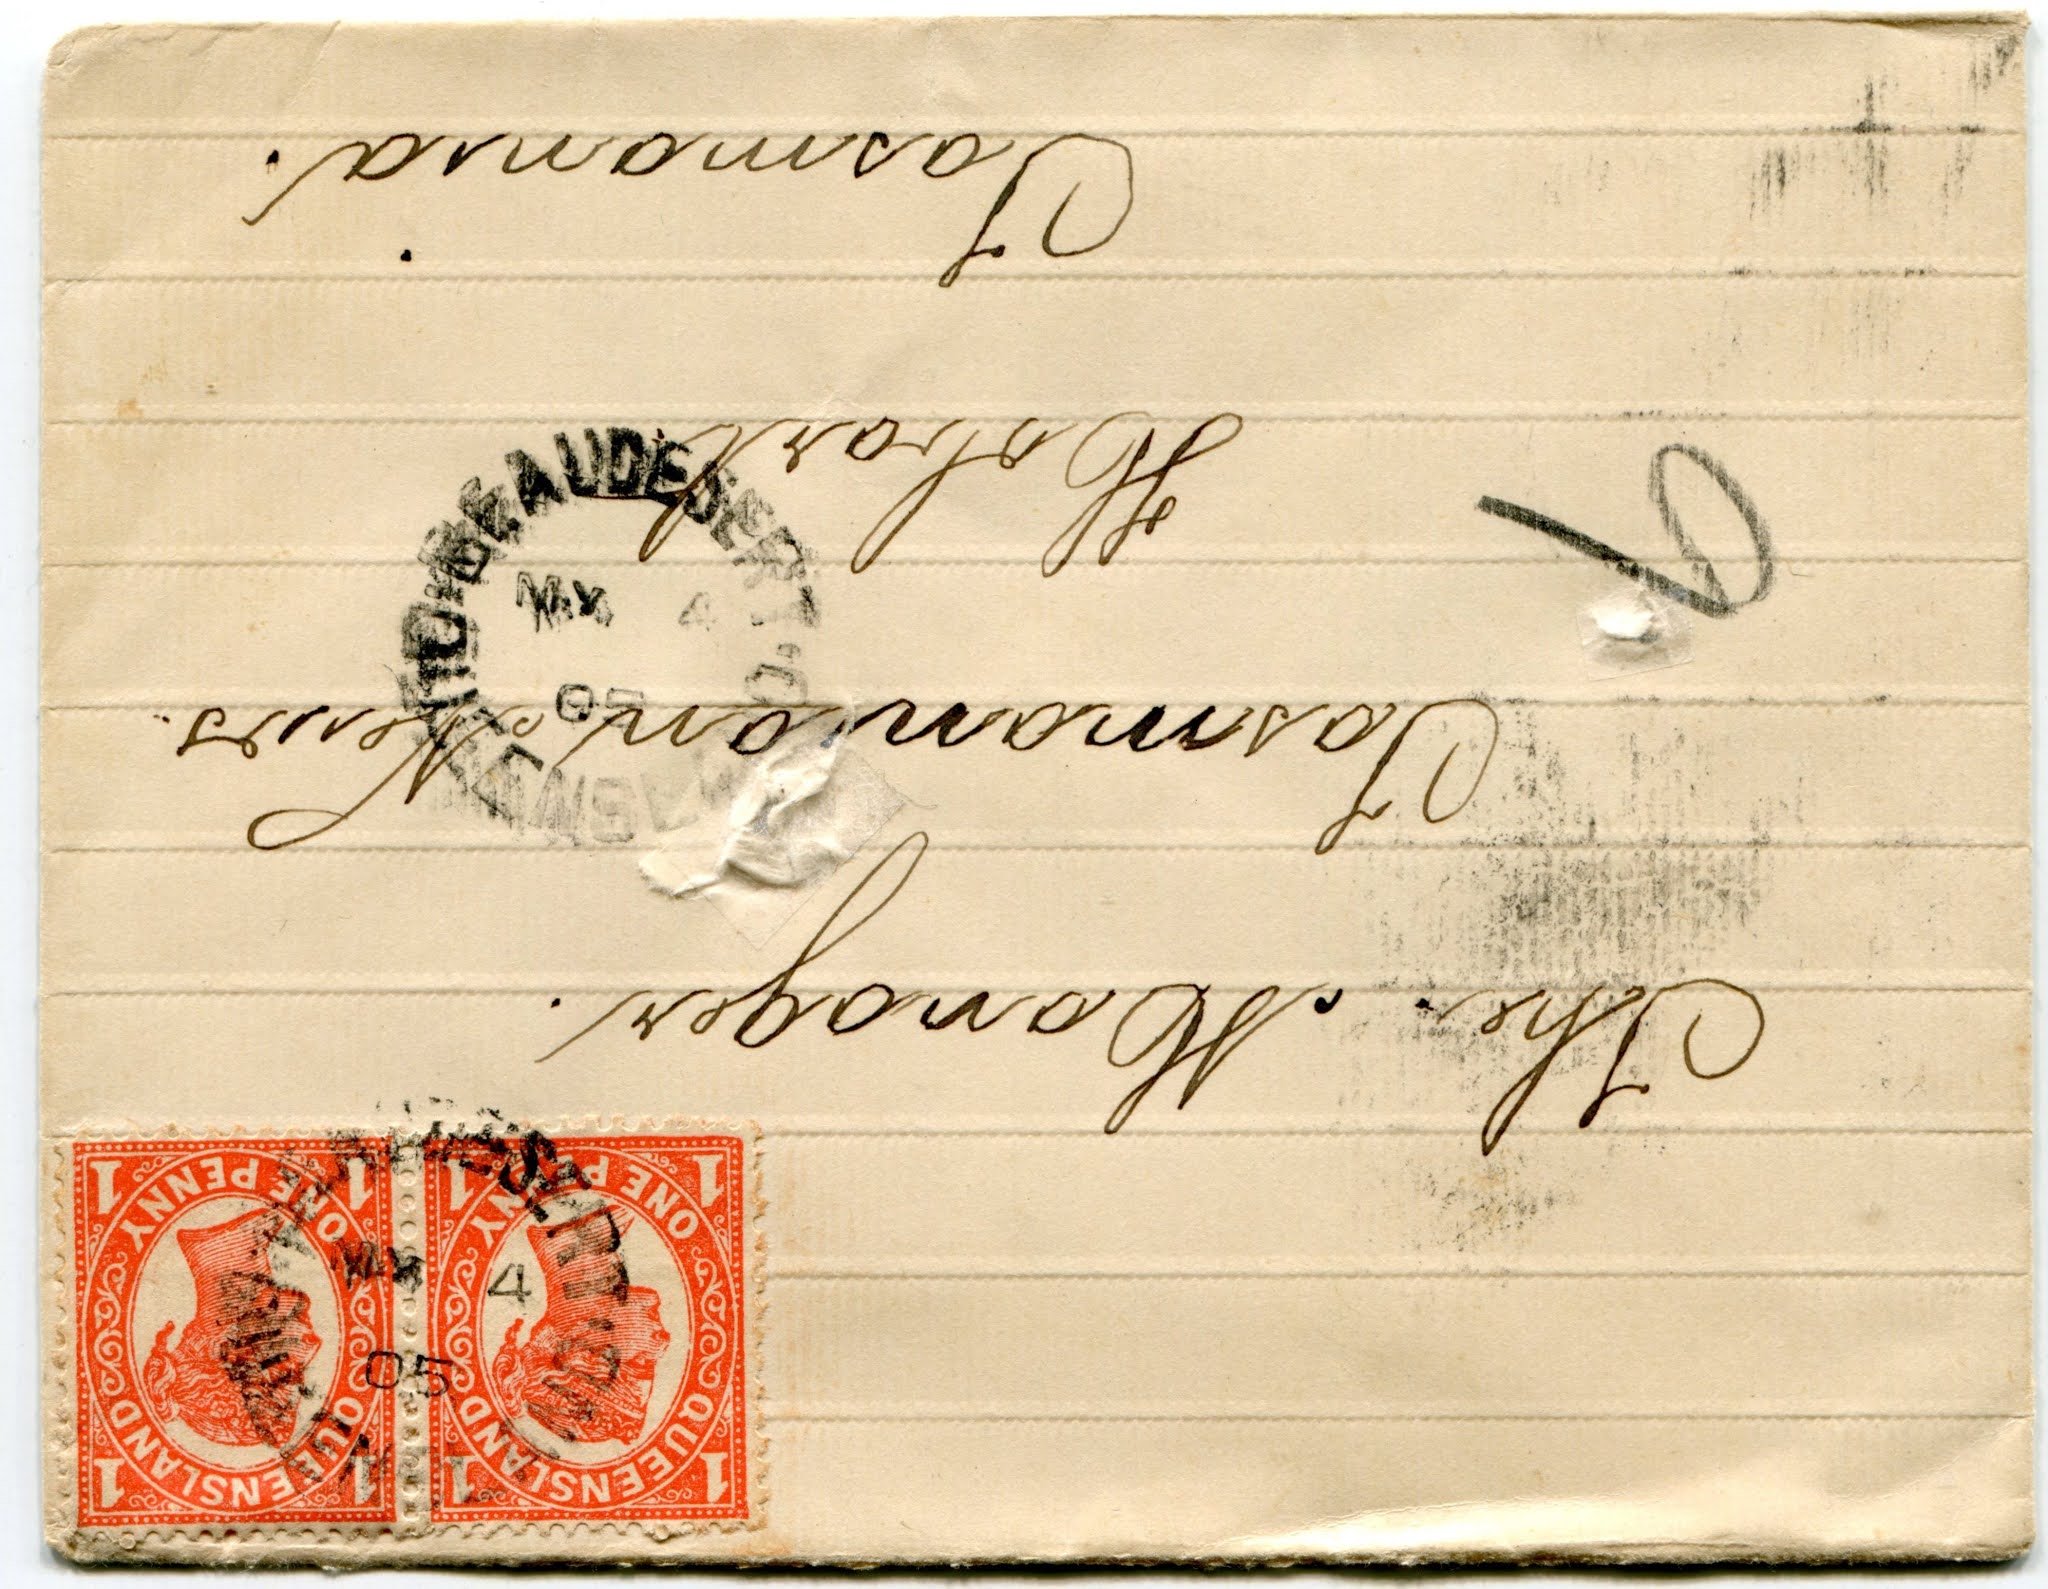 QUEENSLAND
ONE PENNY
1 1 1 1
QUEENSLAND
ONE PENNY
1 1 1 1
MY 4
05
The Manager.
Tasmanian News.
BEAUDESERT
MY 4
05
Hobart
Tasmania.